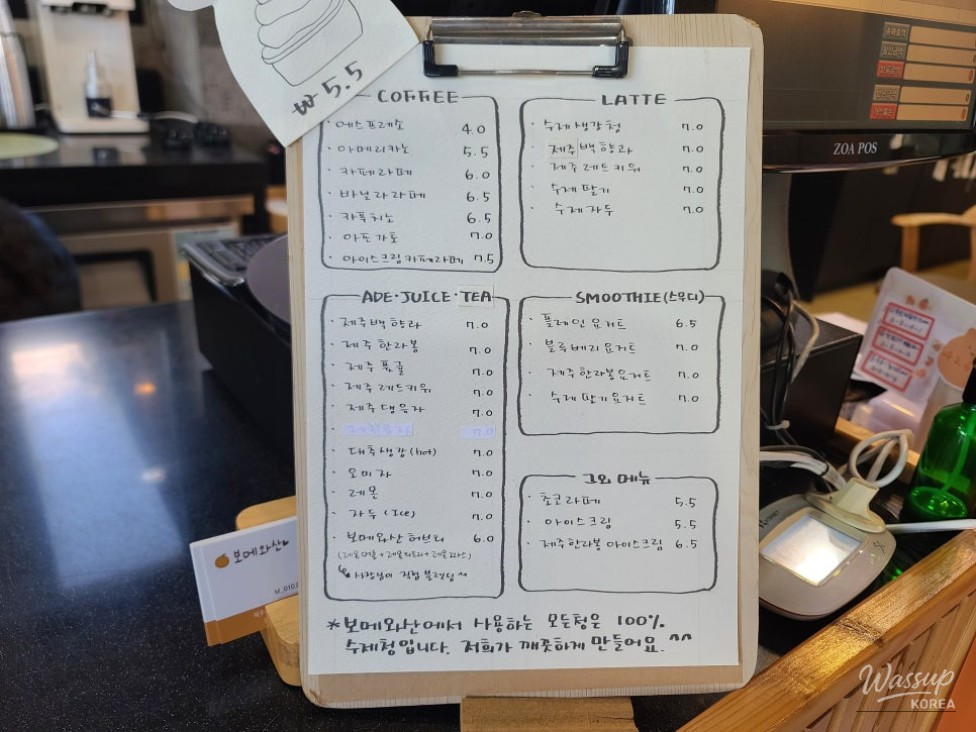 ₩ 5.5
COFFEE
· 에스프레소 4.0
· 아메리카노 5.5
· 카페라떼 6.0
· 바닐라라떼 6.5
· 카푸치노 6.5
· 아포가토 7.0
· 아이스크림카페라떼 7.5
LATTE
· 수제생강청 7.0
· 제주백향과 7.0
· 제주레드키위 7.0
· 수제딸기 7.0
· 수제자두 7.0
ADE·JUICE·TEA
· 제주백향과 7.0
· 제주한라봉 7.0
· 제주풋귤 7.0
· 제주레드키위 7.0
· 제주댕유자 7.0
7.0
· 대추생강(hot) 7.0
· 오미자 7.0
· 레몬 7.0
· 자두(Ice) 7.0
· 보메와산허브티 6.0
직접 블렌딩 ^^
SMOOTHIE(스무디)
· 플레인요거트 6.5
· 블루베리요거트 7.0
· 제주한라봉요거트 7.0
· 수제딸기요거트 7.0
그외 메뉴
· 초코라떼 5.5
· 아이스크림 5.5
· 제주한라봉아이스크림 6.5
*보메와산에서 사용하는 모든청은 100%
수제청입니다. 저희가 깨끗하게 만들어요.^^
ZOA POS
보메와산
Wassup
KOREA